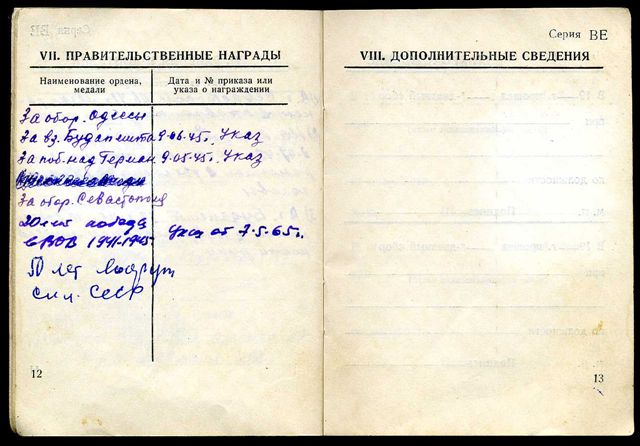 VII. ПРАВИТЕЛЬСТВЕННЫЕ НАГРАДЫ
Наименование ордена, медали
Дата и № приказа или указа о награждении
За обор. Одессы
За вз. Будапешта 9.06.45г. Указ
За поб. над Герман 9.05.45г. Указ
За обор. Севастополя
20 лет победы
в ВОВ 1941-1945г. Указ от 7.5.65г.
50 лет Вооруж
сил СССР
12
Серия ВЕ
VIII. ДОПОЛНИТЕЛЬНЫЕ СВЕДЕНИЯ
13